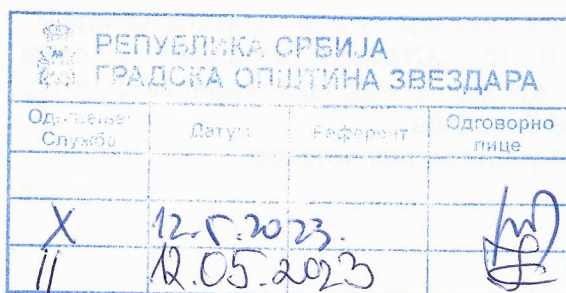 РЕПУБЛИКА СРБИЈА
ГРАДСКА ОПШТИНА ЗВЕЗДАРА
Одељење/ Датум Референт Одговорно
Служба лице
X 12.5.2023.
II 12.05.2023